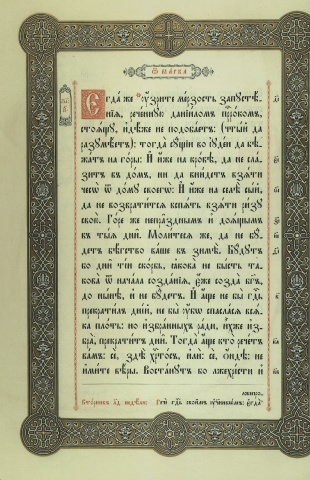 Ѿ МАРКА
Єгда́ же ѹ҆́зрите ме́рзость запꙋстѣ́-
нїѧ, рече́ннꙋю данїи́ломъ прⷪ҇ро́комъ,
стоѧ́щꙋ, и҆дѣ́же не подоба́етъ: (чты́й да
разꙋмѣ́етъ:) тогда̀ сꙋ́щїи во і҆ꙋде́и да бѣ-
жа́тъ на го́ры: И҆ и҆́же на кро́вѣ, да не слѣ́-
зитъ въ до́мъ, ни да вни́детъ взѧ́ти
чесѡ̀ ѿ до́мꙋ своегѡ̀: И҆ и҆́же на селѣ̀ сы́й,
да не возврати́тсѧ вспѧ́ть взѧ́ти ри́зꙋ
свою̀. Го́ре же непра́зднымъ и҆ доѧ́щымъ
въ ты́ѧ дни̑. Моли́тесѧ же, да не бꙋ́-
детъ бѣ́гство ва́ше въ зимѣ̀. Бꙋ́дꙋтъ
бо дні́е ті́и ско́рбь, ꙗ҆кова̀ не бы́сть та-
кова̀ ѿ нача́ла созда́нїѧ, є҆́же созда̀ бг҃ъ,
до ны́нѣ, и҆ не бꙋ́детъ. И҆ а҆́ще не бы̀ гдⷭ҇ь
прекрати́лъ дні́й, не бы̀ ᲂу҆́бѡ спасла́сѧ всѧ́-
ка пло́ть: но и҆збра́нныхъ ра́ди, и҆́хже и҆з-
бра̀, прекрати́тъ дні́й. Тогда̀ а҆́ще кто̀ рече́тъ
ва́мъ: сѐ, здѣ̀ хрⷭ҇то́съ, и҆лѝ: сѐ, ѻ҆́ндѣ: не
и҆ми́те вѣ́ры. Воста́нꙋтъ бо лжехрі́сти и҆
лжепро-